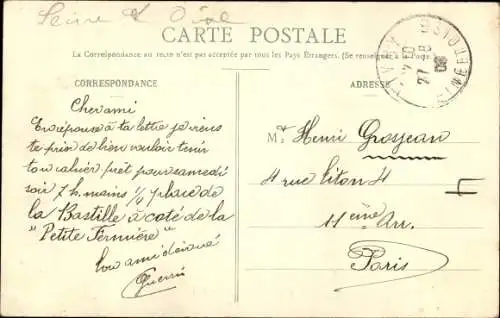 Seine & Oise
CARTE POSTALE
La Correspondance au recto n'est pas acceptée par tous les Pays Étrangers. (Se renseigner à la Poste)
CORRESPONDANCE
ADRESSE
Cher ami
En réponse à ta lettre je viens
te prier de bien vouloir tenir
ton cahier prêt pour samedi
soir 7 h. moins 1/4 place de
la Bastille à coté de la
"Petite Fermière"
Ton ami dévoué
Guerin
Mr Henri Grosjean
4 rue Titon 4
11eme Arr.
Paris
27
08